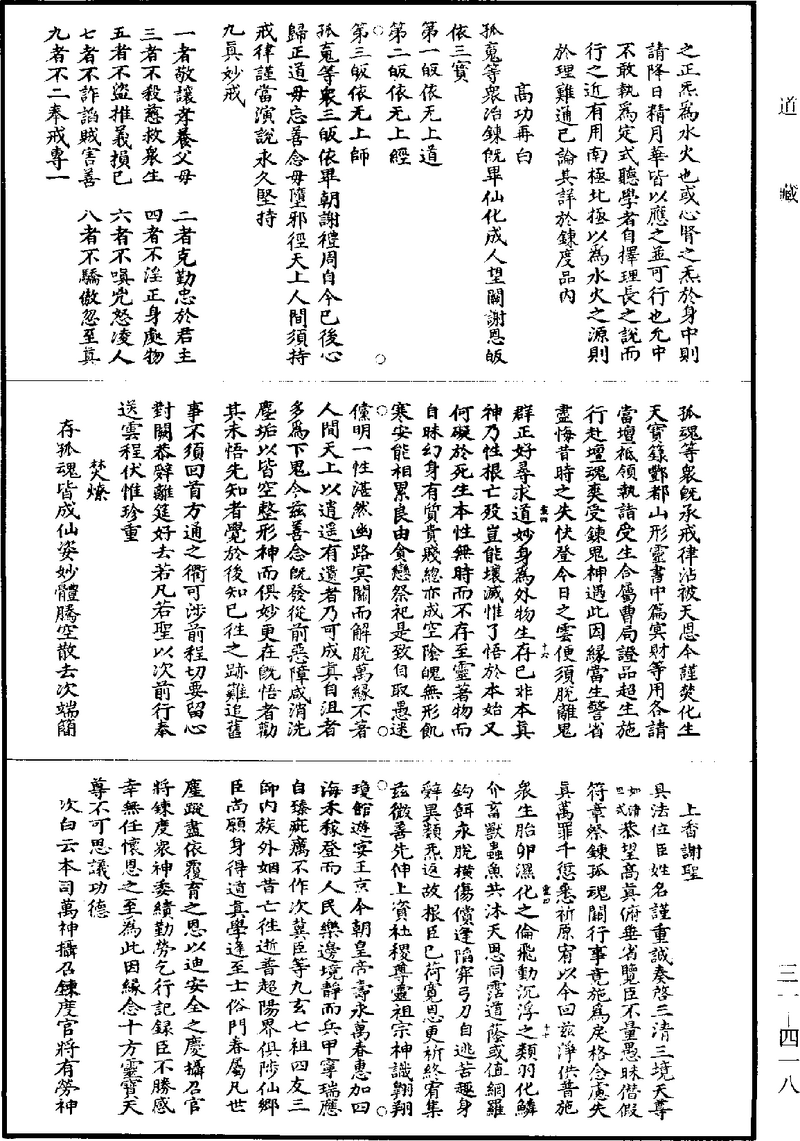 道藏
三一—四一八
之正炁為水火也或心腎之炁於身中則
請降日精月華皆以應之並可行也允中
不敢執為定式聽學者自擇理長之說而
行之近有用南極北極以為水火之源則
於理難通已論其詳於鍊度品內
高功再白
孤䰟等衆冶鍊旣畢仙化成人望闕謝恩皈
依三寳
第一皈依无上道
第二皈依无上經
第三皈依无上師
孤䰟等衆三皈依畢朝謝禮周自今已後心
歸正道毋忘善念毋墮邪徑天上人間須持
戒律謹當演說永久堅持
九眞妙戒
一者敬讓孝養父母 二者克勤忠於君主
三者不殺慈救衆生 四者不淫正身處物
五者不盜推義損已 六者不嗔兇怒凌人
七者不詐謟賊害善 八者不驕傲忽至真
九者不二奉戒專一
孤魂等衆旣承戒律沾被天恩今謹焚化生
天寳籙酆都山形靈書中篇寘財等用各請
當壇祗領執詣受生合屬曹局證品超生施
行赴壇魂爽受鍊鬼神遇此因緣當生警省
盡悔昔時之失伏登今日之雲便須脫離鬼
群正好尋求道妙身為外物生存已非本真
神乃性根亡歿豈能壞滅惟了悟於本始又
何礙於死生本性無時而不存至靈著物而
自昧幻身有質貴賤緫亦成空陰魄無形飢
寒安能相累良由貪戀祭祀是致自取愚迷
儻明一性湛然幽路冥關而解脫萬緣不著
人間天上以逍遥有遺者乃可成真自沮者
多為下鬼今玆善念旣發從前惡障咸消洗
塵垢以皆空整形神而俱妙更在旣悟者勸
其未悟先知者覺於後知已往之跡難追舊
事不須回首方通之衢可涉前程切要留心
對闕恭辭離筵好去若凡若聖以次前行奉
送雲程伏惟珍重
焚燎
存孤魂皆成仙姿妙體騰空散去次端簡
上香謝聖
具法位臣姓名謹重誠奏啓三清三境天尊
恭望髙真俯垂省覽臣不量愚昧僭假
符章祭鍊孤魂關行事竟施為戾格念慮失
真萬罪千愆悉祈原宥以今回玆淨供普施
衆生胎卵濕化之倫飛動沉浮之類羽化鱗
介畜獸蟲魚共沐天恩同霑道蔭或値網羅
鈎餌永脫橫傷儻逢陷穽弓刀自逃苦趣身
辭異類炁返故根臣已荷寛恩更祈終宥集
玆微善先伸上資社稷尊靈祖宗神識翱翔
瓊館遊宴玉京今朝皇帝壽永萬春惠加四
海禾稼登而人民樂邊境靜而兵甲寧瑞應
自臻疵癘不作次兾臣等九玄七祖四友三
師內族外姻昔亡往逝普超陽界俱陟仙鄉
臣尚願身得適真學逢至士俗門眷屬凡世
塵蹤盡依覆育之恩以迪安全之慶攝召官
將鍊度衆神委績勤勞乞行記録臣不勝感
幸無任懷恩之至為此因緣念十方靈寳天
尊不可思議功德
次白云本司萬神攝召鍊度官將有勞神